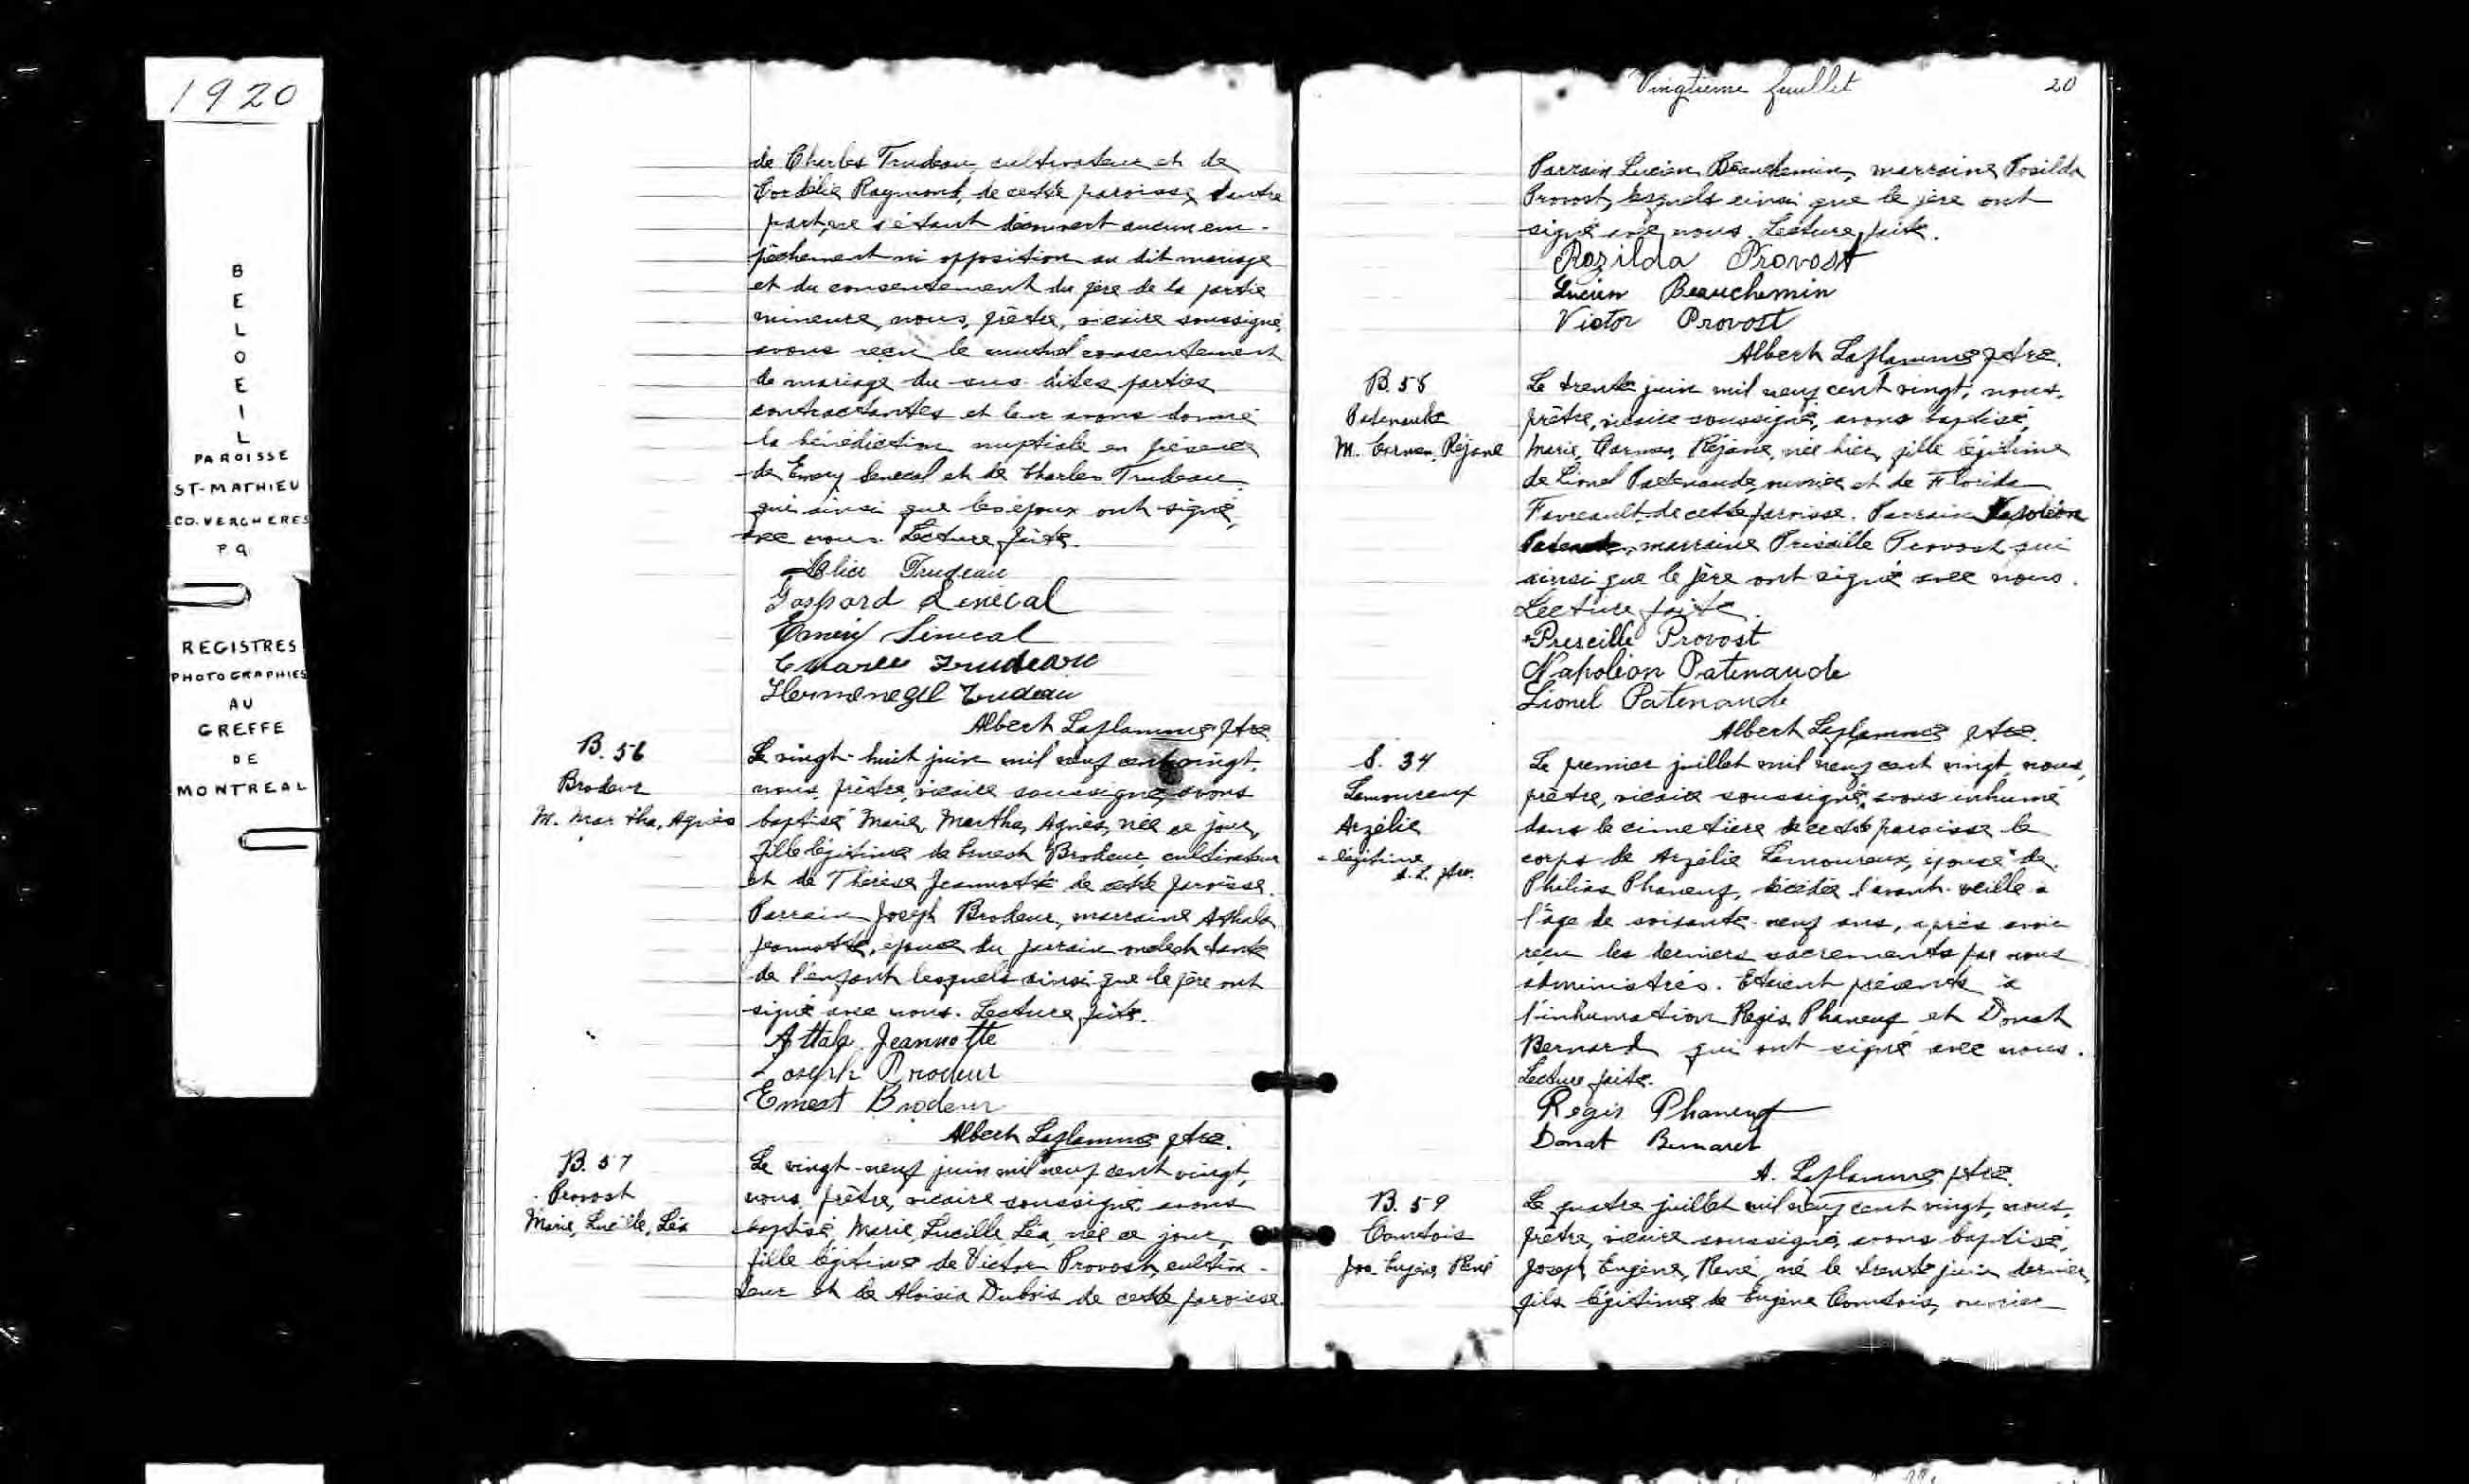 1920
BELOEIL
PAROISSE
ST-MATHIEU
CO. VERCHERES
P.Q.
REGISTRES
PHOTOGRAPHIES
AU
GREFFE
DE
MONTREAL
de Charles Trudeau, cultivateur et de
Cordélie Raymond, de cette paroisse, d'autre
part, ne s'étant découvert aucun em-
pêchement ni opposition au dit mariage
et du consentement du père de la partie
mineure, nous, prêtre, vicaire soussigné,
avons reçu le mutuel consentement
de mariage du sus-dites parties
contractantes et leur avons donné
la bénédiction nuptiale en présence
de Emery Senecal et de Charles Trudeau
qui ainsi que les époux ont signé
avec nous. Lecture faite.
Alice Trudeau
Gaspard Senécal
Emery Sénécal
Charles Trudeau
Hermenegil Trudeau
Albert Laflamme ptre
B. 56
Brodeur
M. Martha, Agnès
Le vingt-huit juin mil neuf cent vingt,
nous, prêtre, vicaire soussigné, avons
baptisé Marie, Martha, Agnès, née ce jour,
fille légitime de Ernest Brodeur, cultivateur
et de Thérèse Jeannotte de cette paroisse.
Parrain Joseph Brodeur, marraine Athala
Jeannotte, épouse du parrain oncle et tante
de l'enfant lesquels ainsi que le père ont
signé avec nous. Lecture faite.
Attala Jeannotte
Joseph Brodeur
Ernest Brodeur
Albert Laflamme ptre.
B. 57
Provost
Marie, Lucille, Léa
Le vingt-neuf juin mil neuf cent vingt,
nous, prêtre, vicaire soussigné, avons
baptisé, Marie, Lucille, Léa, née ce jour,
fille légitime de Victor Provost, cultiva-
teur et de Aloisia Dubois de cette paroisse.
Vingtième feuillet 20
Parrain Lucien Beauchemin, marraine Rosilda
Provost, lesquels ainsi que le père ont
signé avec nous. Lecture faite.
Rozilda Provost
Lucien Beauchemin
Victor Provost
Albert Laflamme ptre.
B. 58
Patenaude
M. Carmen, Réjane
Le trente juin mil neuf cent vingt, nous,
prêtre, vicaire soussigné, avons baptisé,
Marie, Carmen, Réjane, née hier, fille légitime
de Lionel Patenaude, ouvrier et de Florida
Favreault de cette paroisse. Parrain Napoléon
Patenaude, marraine Priscille Provost qui
ainsi que le père ont signé avec nous.
Lecture faite.
Prescille Provost
Napoléon Patenaude
Lionel Patenaude
Albert Laflamme ptre.
S. 34
Lamoureux
Arzélie
légitime
A. L. ptre.
Le premier juillet mil neuf cent vingt, nous,
prêtre, vicaire soussigné, avons inhumé
dans le cimetière de cette paroisse le
corps de Arzélie Lamoureux, épouse de
Philias Phaneuf, décédée l'avant-veille à
l'âge de soixante-neuf ans, après avoir
reçu les derniers sacrements par nous
administrés. Etaient présents à
l'inhumation Regis Phaneuf et Donat
Bernard qui ont signé avec nous.
Lecture faite.
Régis Phaneuf
Donat Bernard
A. Laflamme ptre.
B. 59
Courtois
Jos. Eugène, René
Le quatre juillet mil neuf cent vingt, nous,
prêtre, vicaire soussigné, avons baptisé,
Joseph, Eugène, René, né le trente juin dernier,
fils légitime de Eugène Courtois, ouvrier